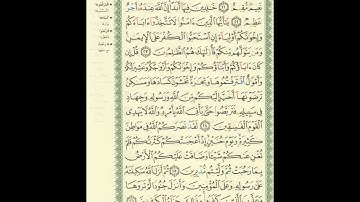 نَعِيمٌ مُّقِيمٌ ۝٢١ خَٰلِدِينَ فِيهَآ أَبَدًا إِنَّ ٱللَّهَ عِندَهُۥٓ أَجْرٌ
عَظِيمٌ ۝٢٢ يَٰٓأَيُّهَا ٱلَّذِينَ ءَامَنُوا۟ لَا تَتَّخِذُوٓا۟ ءَابَآءَكُمْ
وَإِخْوَٰنَكُمْ أَوْلِيَآءَ إِنِ ٱسْتَحَبُّوا۟ ٱلْكُفْرَ عَلَى ٱلْإِيمَٰنِ
وَمَن يَتَوَلَّهُم مِّنكُمْ فَأُو۟لَٰٓئِكَ هُمُ ٱلظَّٰلِمُونَ ۝٢٣ قُلْ إِن
كَانَ ءَابَآؤُكُمْ وَأَبْنَآؤُكُمْ وَإِخْوَٰنُكُمْ وَأَزْوَٰجُكُمْ وَعَشِيرَتُكُمْ
وَأَمْوَٰلٌ ٱقْتَرَفْتُمُوهَا وَتِجَٰرَةٌ تَخْشَوْنَ كَسَادَهَا وَمَسَٰكِنُ
تَرْضَوْنَهَآ أَحَبَّ إِلَيْكُم مِّنَ ٱللَّهِ وَرَسُولِهِۦ وَجِهَادٍ فِى
سَبِيلِهِۦ فَتَرَبَّصُوا۟ حَتَّىٰ يَأْتِىَ ٱللَّهُ بِأَمْرِهِۦ وَٱللَّهُ لَا يَهْدِى
ٱلْقَوْمَ ٱلْفَٰسِقِينَ ۝٢٤ لَقَدْ نَصَرَكُمُ ٱللَّهُ فِى مَوَاطِنَ
كَثِيرَةٍ وَيَوْمَ حُنَيْنٍ إِذْ أَعْجَبَتْكُمْ كَثْرَتُكُمْ فَلَمْ
تُغْنِ عَنكُمْ شَيْـًٔا وَضَاقَتْ عَلَيْكُمُ ٱلْأَرْضُ
بِمَا رَحُبَتْ ثُمَّ وَلَّيْتُم مُّدْبِرِينَ ۝٢٥ ثُمَّ أَنزَلَ ٱللَّهُ سَكِينَتَهُۥ
عَلَىٰ رَسُولِهِۦ وَعَلَى ٱلْمُؤْمِنِينَ وَأَنزَلَ جُنُودًا لَّمْ تَرَوْهَا